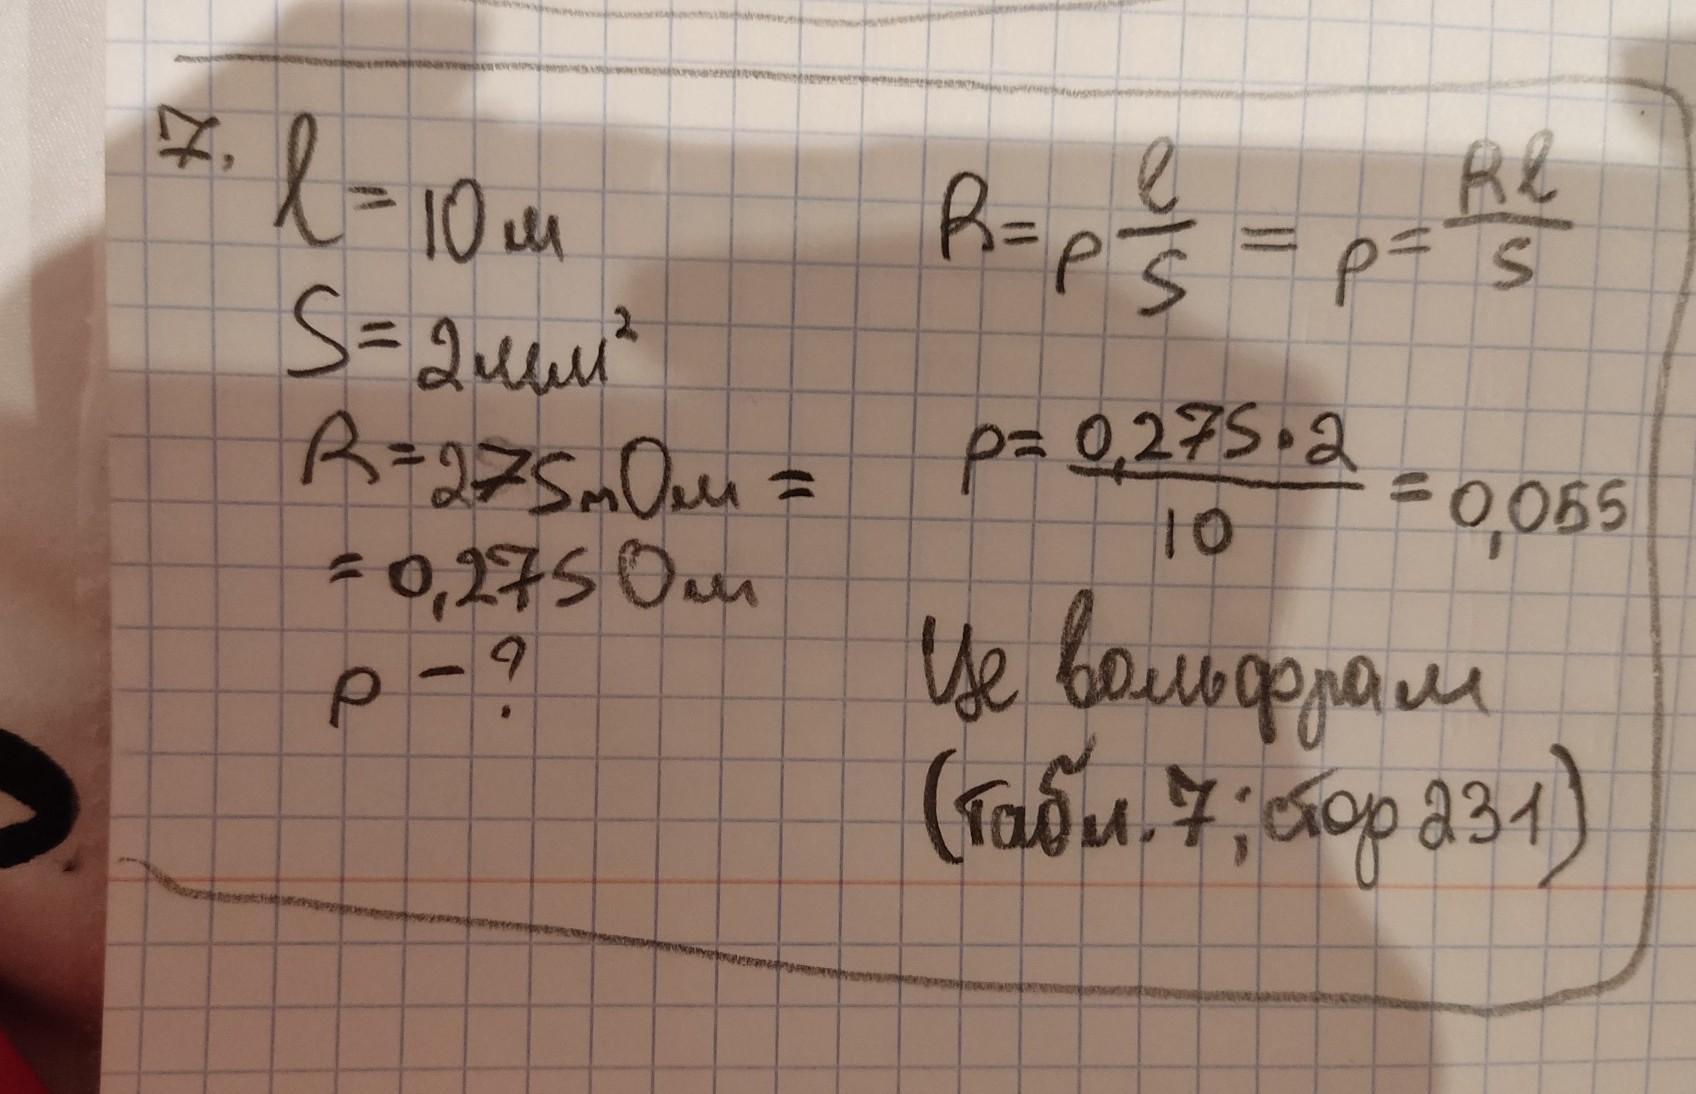 7. l = 10 м
S = 2 мм²
R = 275 mОм =
= 0,275 Ом
ρ - ?
R = ρ l/S = ρ = Rl/S
ρ = 0,275 · 2/10 = 0,055
Це вольфрам
(табл. 7; стор 231)